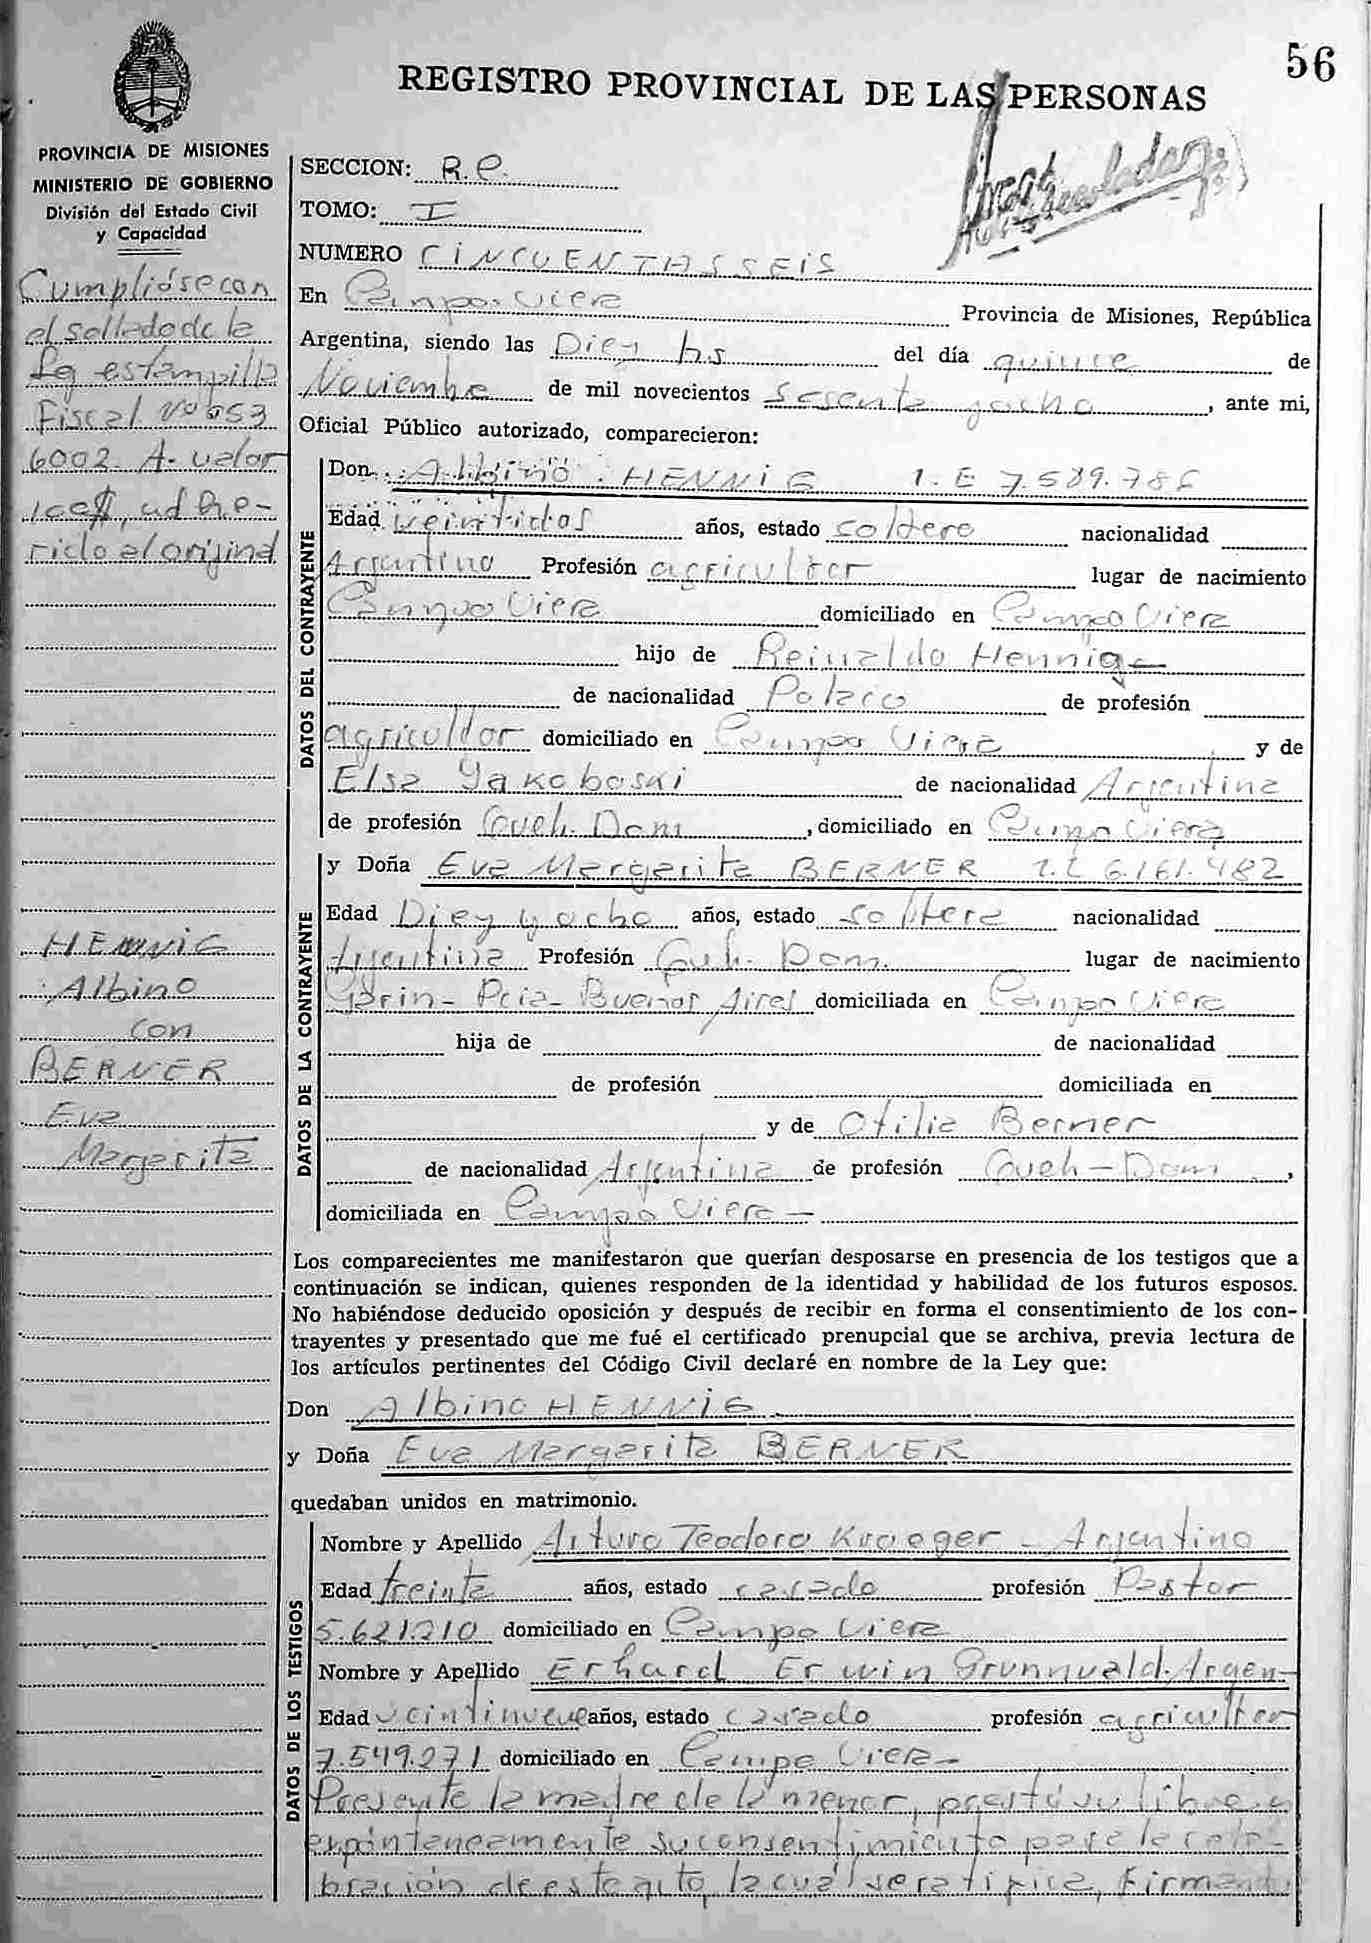 56
REGISTRO PROVINCIAL DE LAS PERSONAS
PROVINCIA DE MISIONES
MINISTERIO DE GOBIERNO
División del Estado Civil
y Capacidad
Cumplióse con
el sellado de la
Ley estampilla
Fiscal Nº 053
6002. A. valor
100$, adhe-
rida al original
HENNIG
Albino
con
BERNER
Eva
Margarita
SECCION: R.C.
TOMO: I
NUMERO CINCUENTA Y SEIS
En Campo Viera Provincia de Misiones, República
Argentina, siendo las Diez hs del día quince de
Noviembre de mil novecientos Sesenta y ocho, ante mi,
Oficial Público autorizado, comparecieron:
DATOS DEL CONTRAYENTE
Don Albino HENNIG 1. E 7.589.786
Edad veintidos años, estado soltero nacionalidad
Argentino Profesión agricultor lugar de nacimiento
Campo Viera domiciliado en Campo Viera
hijo de Reinaldo Hennig
de nacionalidad Polaco de profesión
agricultor domiciliado en Campo Viera y de
Elsa Yakoboski de nacionalidad Argentina
de profesión Queh. Dom, domiciliado en Campo Viera
DATOS DE LA CONTRAYENTE
y Doña Eva Margarita BERNER 1. C 6.161.482
Edad Diez y ocho años, estado soltera nacionalidad
Argentina Profesión Queh. Dom. lugar de nacimiento
Garin - Pcia - Buenos Aires domiciliada en Campo Viera
hija de de nacionalidad
de profesión domiciliada en
y de Otilia Berner
de nacionalidad Argentina de profesión Queh - Dom,
domiciliada en Campo Viera -
Los comparecientes me manifestaron que querían desposarse en presencia de los testigos que a
continuación se indican, quienes responden de la identidad y habilidad de los futuros esposos.
No habiéndose deducido oposición y después de recibir en forma el consentimiento de los con-
trayentes y presentado que me fué el certificado prenupcial que se archiva, previa lectura de
los artículos pertinentes del Código Civil declaré en nombre de la Ley que:
Don Albino HENNIG
y Doña Eva Margarita BERNER
quedaban unidos en matrimonio.
DATOS DE LOS TESTIGOS
Nombre y Apellido Arturo Teodoro Kroeger - Argentino
Edad treinta años, estado casado profesión Pastor
5.621.210 domiciliado en Campo Viera
Nombre y Apellido Erhard Erwin Grunnuald. Argen-
Edad veintinueve años, estado casado profesión agricultor
7.549.271 domiciliado en Campo Viera -
Presente la madre de la menor, prestó su libre y
expóntaneamente su consentimiento para la cele-
bración de este acto, la cual se ratifica, firmando